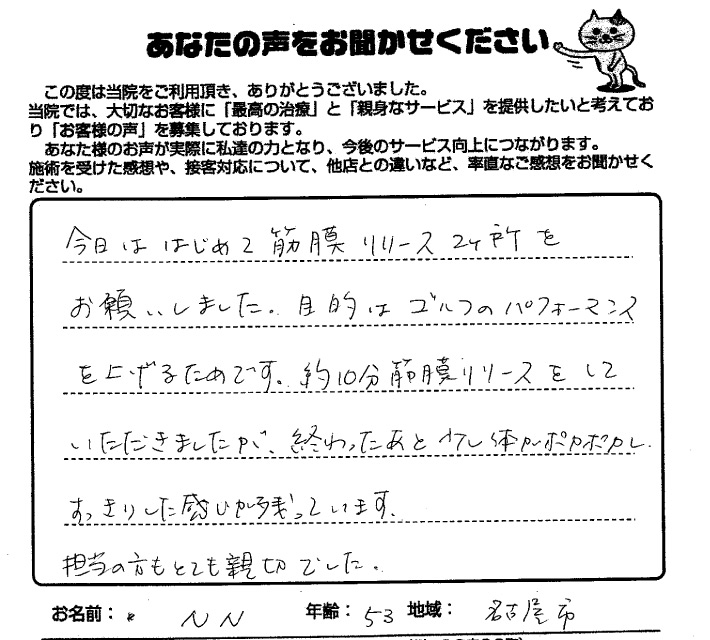 あなたの声をお聞かせください
この度は当院をご利用頂き、ありがとうございました。
当院では、大切なお客様に「最高の治療」と「親身なサービス」を提供したいと考えてお
り「お客様の声」を募集しております。
あなた様のお声が実際に私達の力となり、今後のサービス向上につながります。
施術を受けた感想や、接客対応について、他店との違いなど、率直なご感想をお聞かせく
ださい。
今日ははじめて筋膜リリース2ヶ所を
お願いしました。目的はゴルフのパフォーマンス
を上げるためです。約10分筋膜リリースをして
いただきましたが、終わったあと少し体がポカポカし
すっきりした感じが残っています。
担当の方もとても親切でした。
お名前： NN 年齢： 53 地域： 名古屋市